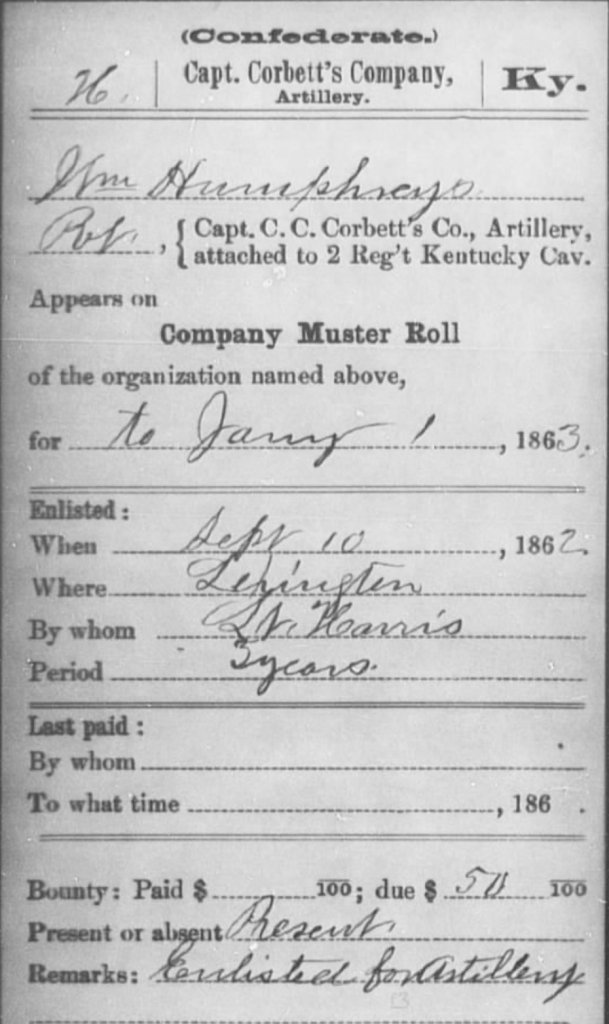 (Confederate.)
H. | Capt. Corbett's Company, | Ky.
Artillery.
Wm Humphreys
Pvt, { Capt. C. C. Corbett's Co., Artillery,
attached to 2 Reg't Kentucky Cav.
Appears on
Company Muster Roll
of the organization named above,
for to Jany 1, 1863.
Enlisted:
When Sept 10, 1862.
Where Lexington
By whom Lt. Harris
Period 3 years.
Last paid:
By whom
To what time , 186 .
Bounty: Paid $ 100; due $ 50 100
Present or absent Present
Remarks: Enlisted for Artillery